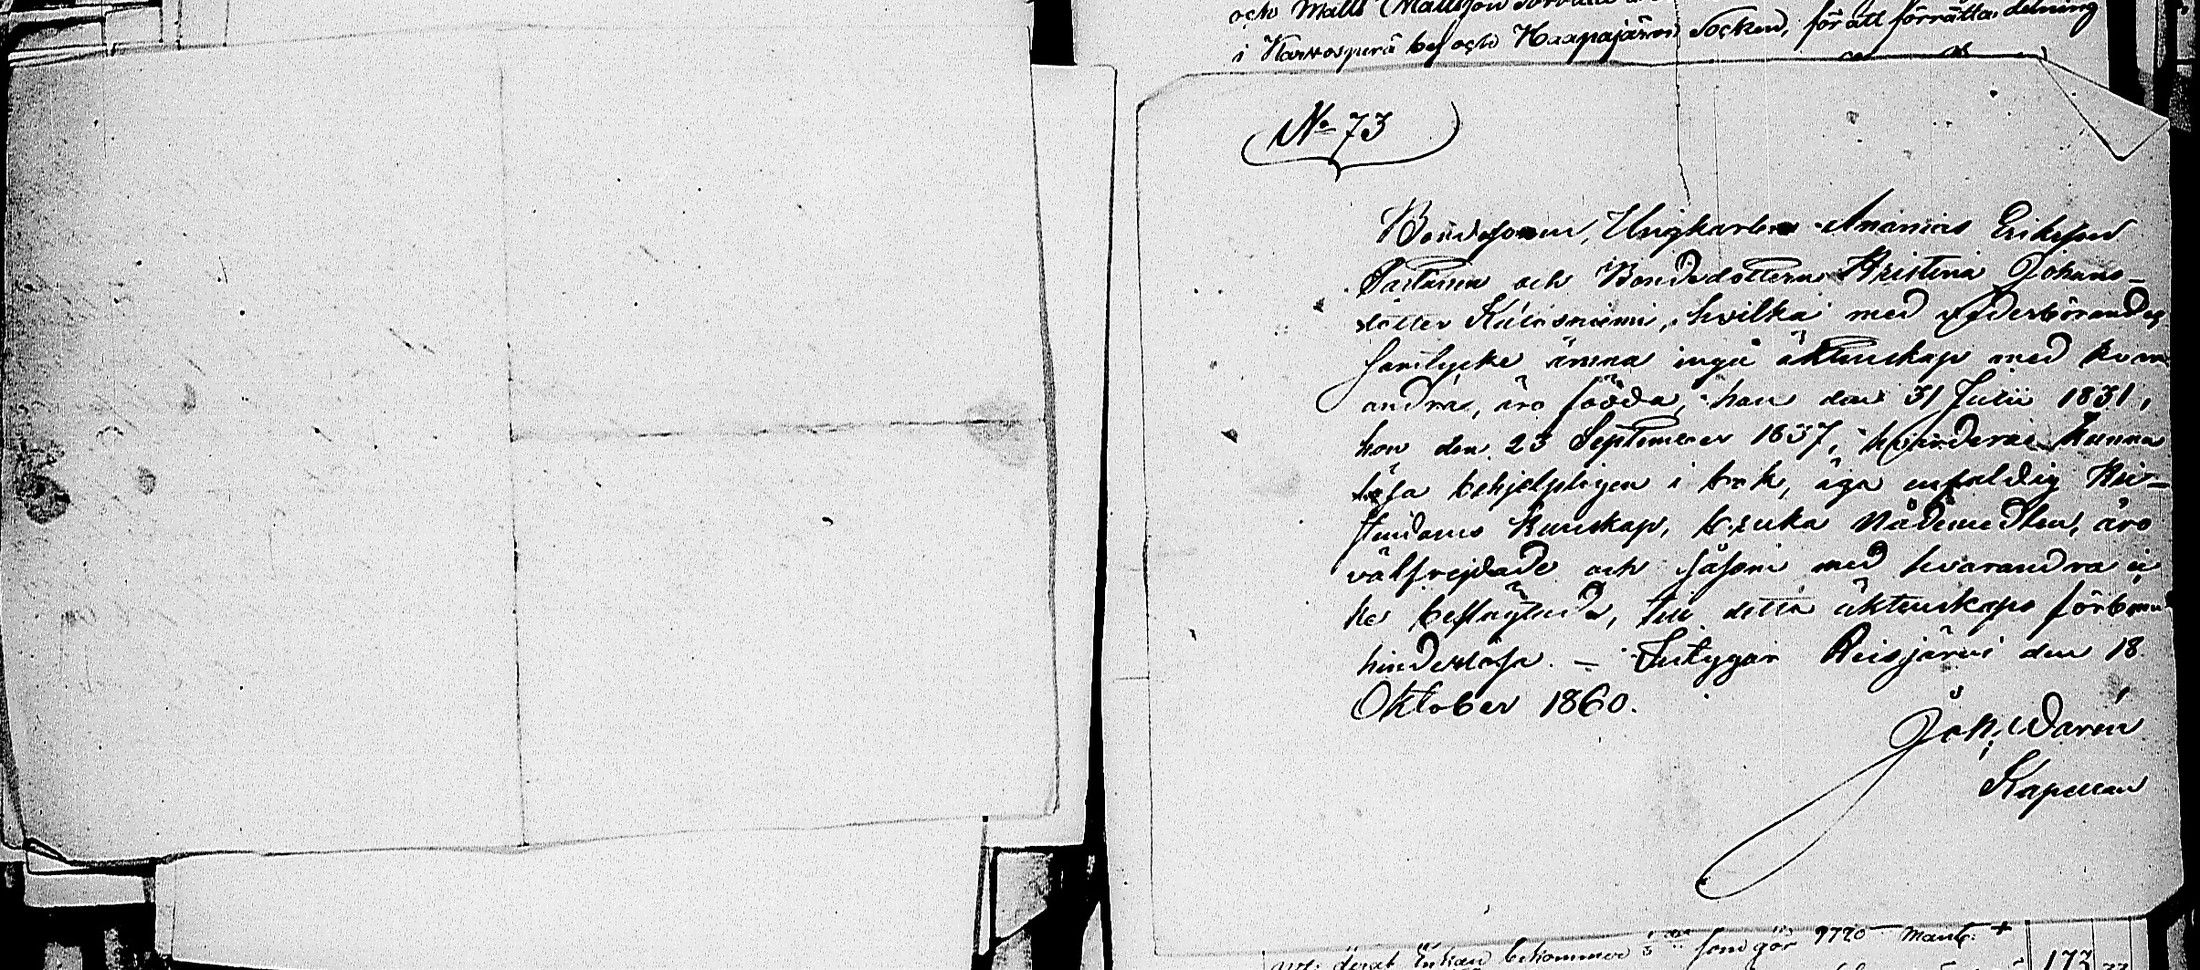 och Matts Mattsson
i Karvosperä by och Haapajärvi Socken, för att förrätta delning
No 73
Bondesonen, Ungkarlen Ananias Eriksson
Partaina och Bondedottern Kristina Johans-
dotter Kalasniemi, hvilka med vederbörandes
samtycke ämna ingå äktenskap med hvar-
andra, äro födda, han den 31 Julii 1831,
hon den 23 September 1837, hvardera kunna
läsa behjelpligen i bok, äga enfaldig Kri-
stendoms kunskap, bruka Nådemedlen, äro
välfrejdade och såsom med hvarandra ic-
ke beslägtade, till detta äktenskaps förbund
hinderslösa. — Intygar Reisjärvi den 18
Oktober 1860.
Joh. Darén
Kapellan
deraf Enkan bekommer som gör 9720 mant. +
172